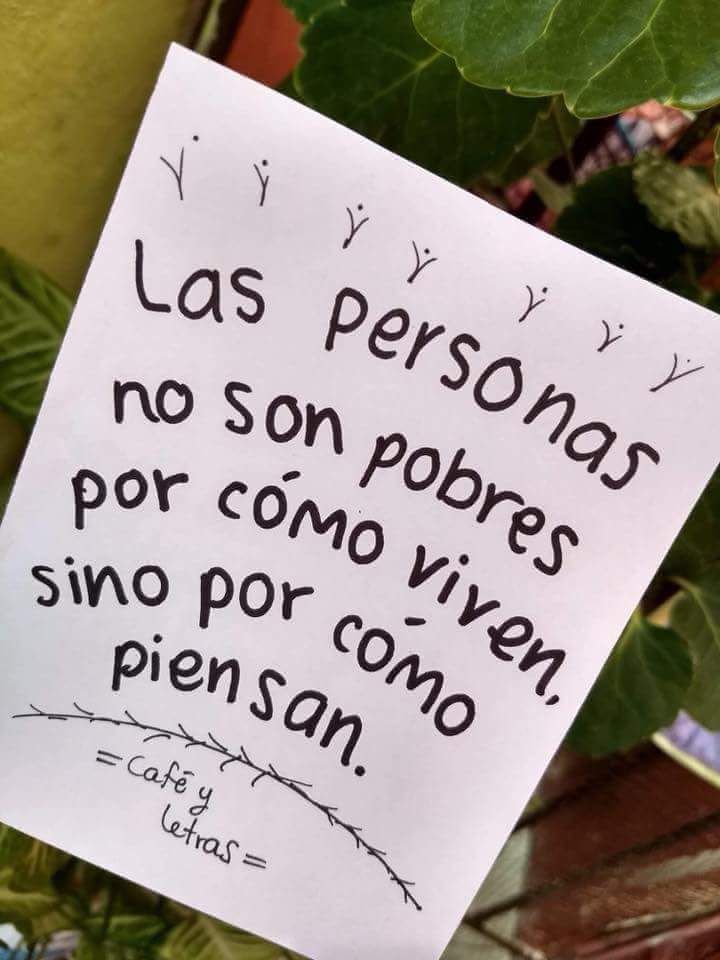 Las personas
no son pobres
por cómo viven,
sino por cómo
piensan.
= Café y
letras =